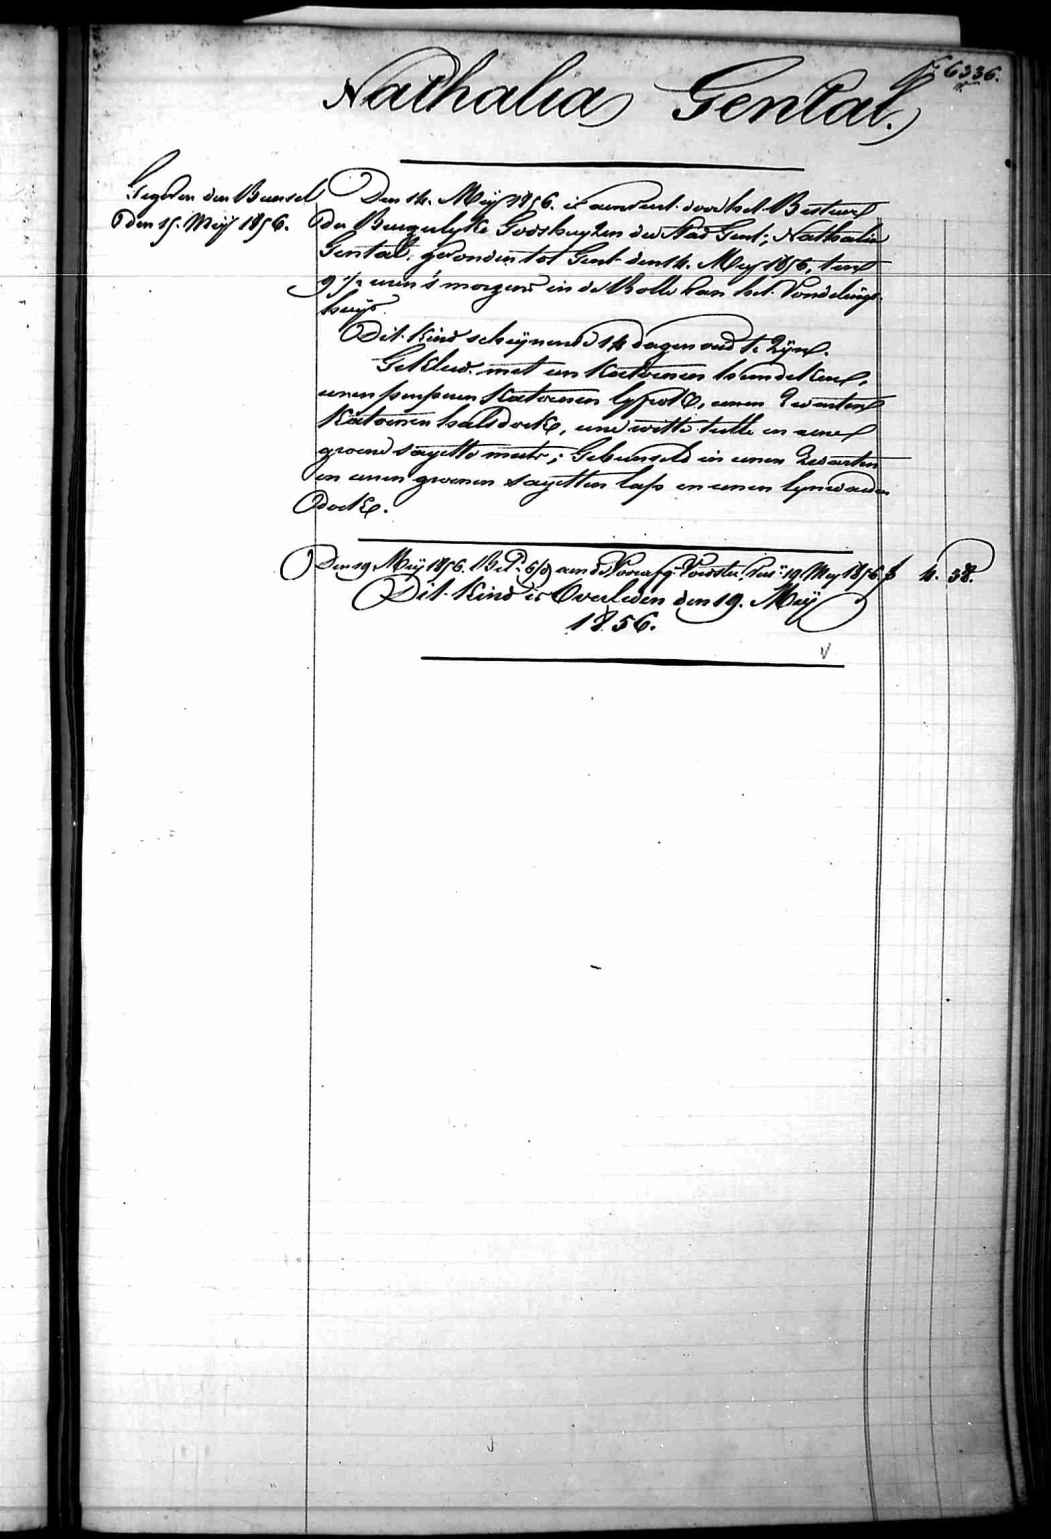 6336.
Nathalia Gental.
Gegeven den Bunsel
den 15. Meij 1856.
Den 14. Meij 1856. is aenveert door het Bestuer
der Burgerlyke Godshuyzen der stad Gent; Nathalia
Gental, gevonden tot Gent den 14. Mey 1856, ten
9 1/2 uren 's morgens in de Rolle van het Vondelings-
huys.
Dit kind schynende 14 dagen oud te zyn.
Gekleed met een katoenen hemdeken,
eenen katoenen lyfrok, eenen zwarten
katoenen halsdoek, eene witte tulle en eene
groene sayette muts; Gebunseld in eenen zwarten
en eenen groenen sayetten laps en eenen lynwaden
doek.
Den 19 Meij 1856. Bet. aen de Voedster 19 Mey 1856 4. 38.
Dit kind is Overleden den 19. Meij
1856.